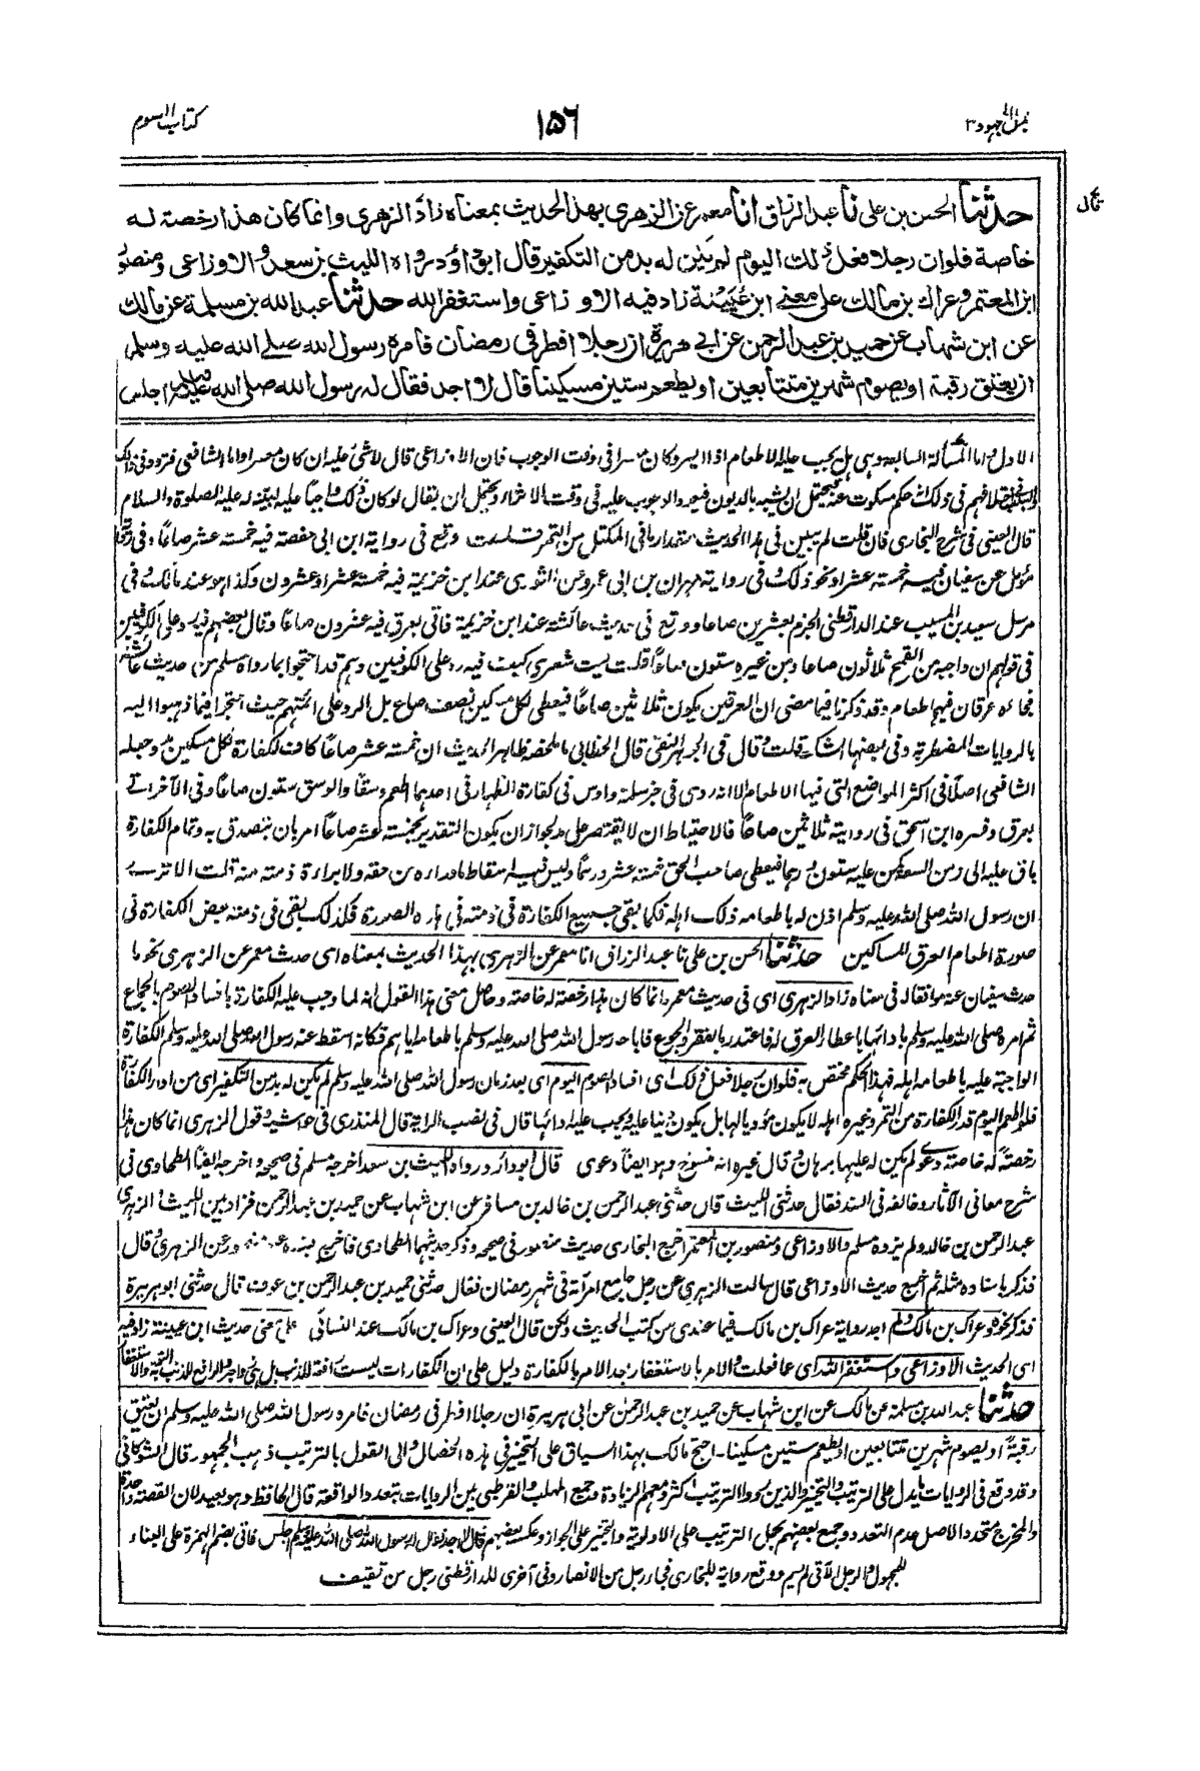 كتاب الصوم
١٥٦
بذل المجهود ٣
قال
حدثنا الحسن بن على نا عبد الرزاق انا معمر عن الزهرى بهذا الحديث بمعناه زاد الزهرى وانما كان هذا رخصة له
خاصة فلو ان رجلا فعل ذلك اليوم لم يكن له بد من التكفير قال ابو داؤد رواه الليث بن سعد والاوزاعى ومنصور
ابن المعتمر وعراك بن مالك على معنى ابن عيينة زاد فيه الاوزاعى واستغفر الله حدثنا عبد الله بن مسلمة عن مالك
عن ابن شهاب عن حميد بن عبد الرحمن عن ابى هريرة ان رجلا افطر فى رمضان فامره رسول الله صلى الله عليه وسلم
ان يعتق رقبة او يصوم شهرين متتابعين او يطعم ستين مسكينا قال لا اجد فقال له رسول الله صلى الله عليه وسلم اجلس
الاول واما المسألة السابعة وهى هل يجب عليه الاطعام اذا ايسر وكان معسرا فى وقت الوجوب فان الاوزاعى قال لا شئ عليه ان كان معسرا واما الشافعى فتردد فى ذلك
والسبب فى اختلافهم فى ذلك انه حكم مسكوت عنه فيحتمل ان يشبه بالديون فيعود الوجوب عليه فى وقت الاثراء ويحتمل ان يقال لو كان ذلك واجبا عليه لبينه له عليه الصلوة والسلام
قال العينى فى شرح البخارى فان قلت لم يبين فى هذا الحديث مقدار ما فى المكتل من التمر قلت وقع فى رواية ابن ابى حفصة فيه خمسة عشر صاعا وفى رواية
مؤمل عن سفيان فيه خمسة عشر او نحو ذلك وفى رواية مهران بن ابى عمر عن الثورى عند ابن خزيمة فيه خمسة عشر او عشرون وكذا هو عند مالك وفى
مرسل سعيد بن المسيب عند الدارقطنى الجزم بعشرين صاعا ووقع فى حديث عائشة عند ابن خزيمة فاتى بعرق فيه عشرون صاعا وقال بعضهم فيه رد على الكوفيين
فى قولهم ان واجبه من القمح ثلاثون صاعا ومن غيره ستون صاعا قلت ليت شعرى كيف فيه رد على الكوفيين وهم قد احتجوا بما رواه مسلم من حديث عائشة
فجاءه عرقان فيهما طعام وقد ذكرنا فيما مضى ان العرقين يكون ثلاثين صاعا فيعطى لكل مسكين نصف صاع بل الرد على ائمتهم حيث احتجوا فيما ذهبوا اليه
بالروايات المضطربة وفى بعضها الشك قلت وقال فى الجوهر النقى قال الخطابى ما ملخصه ظاهر الحديث ان خمسة عشر صاعا كافة لكفارة لكل مسكين مد وجعله
الشافعى اصلا فى اكثر المواضع التى فيها الاطعام الا انه روى فى خبر سلمة واوس فى كفارة الظهار فى احدهما اطعم وسقا والوسق ستون صاعا وفى الآخر اتى
بعرق وفسره ابن اسحق فى رواية ثلاثين صاعا فالاحتياط ان لا يقتصر على مد لجواز ان يكون التقدير بخمسة عشر صاعا امر بان يتصدق به وتمام الكفارة
باق عليه الى زمن السعة كمن عليه ستون درهما فيعطى صاحب الحق خمسة عشر درهما وليس فيه اسقاط ما وراءه من حقه ولا براءة ذمته منه قلت الا ترى
ان رسول الله صلى الله عليه وسلم اذن له باطعامه ذلك اهله فكما بقى جميع الكفارة فى ذمته فى هذه الصورة فكذلك بقى فى ذمته بعض الكفارة فى
صورة اطعام العرق للمساكين حدثنا الحسن بن على نا عبد الرزاق انا معمر عن الزهرى بهذا الحديث بمعناه اى حدث معمر عن الزهرى نحو ما
حدث سفيان عنه موافقا له فى معناه زاد الزهرى اى فى حديث معمر وانما كان هذا رخصة له خاصة وحاصل معنى هذا القول انه لما وجب عليه الكفارة بافساد الصوم بالجماع
ثم امره صلى الله عليه وسلم بادائها باعطاء العرق له فاعتذر بالفقر والجوع فاباحه رسول الله صلى الله عليه وسلم باطعامه اياهم فكانه اسقط عنه رسول الله صلى الله عليه وسلم الكفارة
الواجبة عليه باطعامه اهله فهذا الحكم مختص به فلو ان رجلا فعل ذلك اى افساد الصوم اليوم اى بعد زمان رسول الله صلى الله عليه وسلم لم يكن له بد من التكفير اى من اداء الكفارة
فلو اطعم اليوم قدر الكفارة من التمر وغيره اهله لا يكون مؤديا لها بل يكون دينا عليه ويجب عليه ادائها قال فى نصب الراية قال المنذرى فى حواشيه وقول الزهرى انما كان هذا
رخصة له خاصة دعوى لم يكن له عليها برهان وقال غيره انه منسوخ وهو ايضا دعوى قال ابو داؤد رواه الليث بن سعد اخرجه مسلم فى صحيحه واخرجه ايضا الطحاوى فى
شرح معانى الآثار وخالفه فى السند فقال حدثنى الليث قال حدثنى عبد الرحمن بن خالد بن مسافر عن ابن شهاب عن حميد بن عبد الرحمن فزاد بين الليث والزهرى
عبد الرحمن بن خالد ولم يزده مسلم والاوزاعى ومنصور بن المعتمر اخرج البخارى حديث منصور فى صحيحه وذكر حديثهما الطحاوى فاخرج بسنده عن الزهرى قال
فذكر باسناده مثله ثم اخرج حديث الاوزاعى قال سالت الزهرى عن رجل جامع امرأته فى شهر رمضان فقال حدثنى حميد بن عبد الرحمن بن عوف قال حدثنى ابو هريرة
فذكر نحوه وعراك بن مالك ولم اجد رواية عراك بن مالك فيما عندى من كتب الحديث ولكن قال العينى وعراك بن مالك عند النسائى على معنى حديث ابن عيينة زاد فيه
اى الحديث الاوزاعى واستغفر الله اى عما فعلت والامر بالاستغفار بعد الامر بالكفارة دليل على ان الكفارات ليست رافعة للذنب بل هى زواجر والرافع للذنب التوبة والاستغفار
حدثنا عبد الله بن مسلمة عن مالك عن ابن شهاب عن حميد بن عبد الرحمن عن ابى هريرة ان رجلا افطر فى رمضان فامره رسول الله صلى الله عليه وسلم ان يعتق
رقبة او يصوم شهرين متتابعين او يطعم ستين مسكينا - احتج مالك بهذا السياق على التخيير فى هذه الخصال والى القول بالترتيب ذهب الجمهور قال الشوكانى
وقد وقع فى الروايات ما يدل على الترتيب والتخيير والذين رووا الترتيب اكثر ومعهم الزيادة وجمع المهلب والقرطبى بين الروايات بتعدد الواقعة قال الحافظ وهو بعيد لان القصة واحدة
والمخرج متحد والاصل عدم التعدد وجمع بعضهم بحمل الترتيب على الاولوية والتخيير على الجواز وعكسه بعضهم قال لا اجد فقال له رسول الله صلى الله عليه وسلم اجلس فاتى بضم الهمزة على البناء
للمجهول والرجل الآتى لم يسم ووقع رواية للبخارى فجاء رجل من الانصار وفى اخرى للدارقطنى رجل من ثقيف